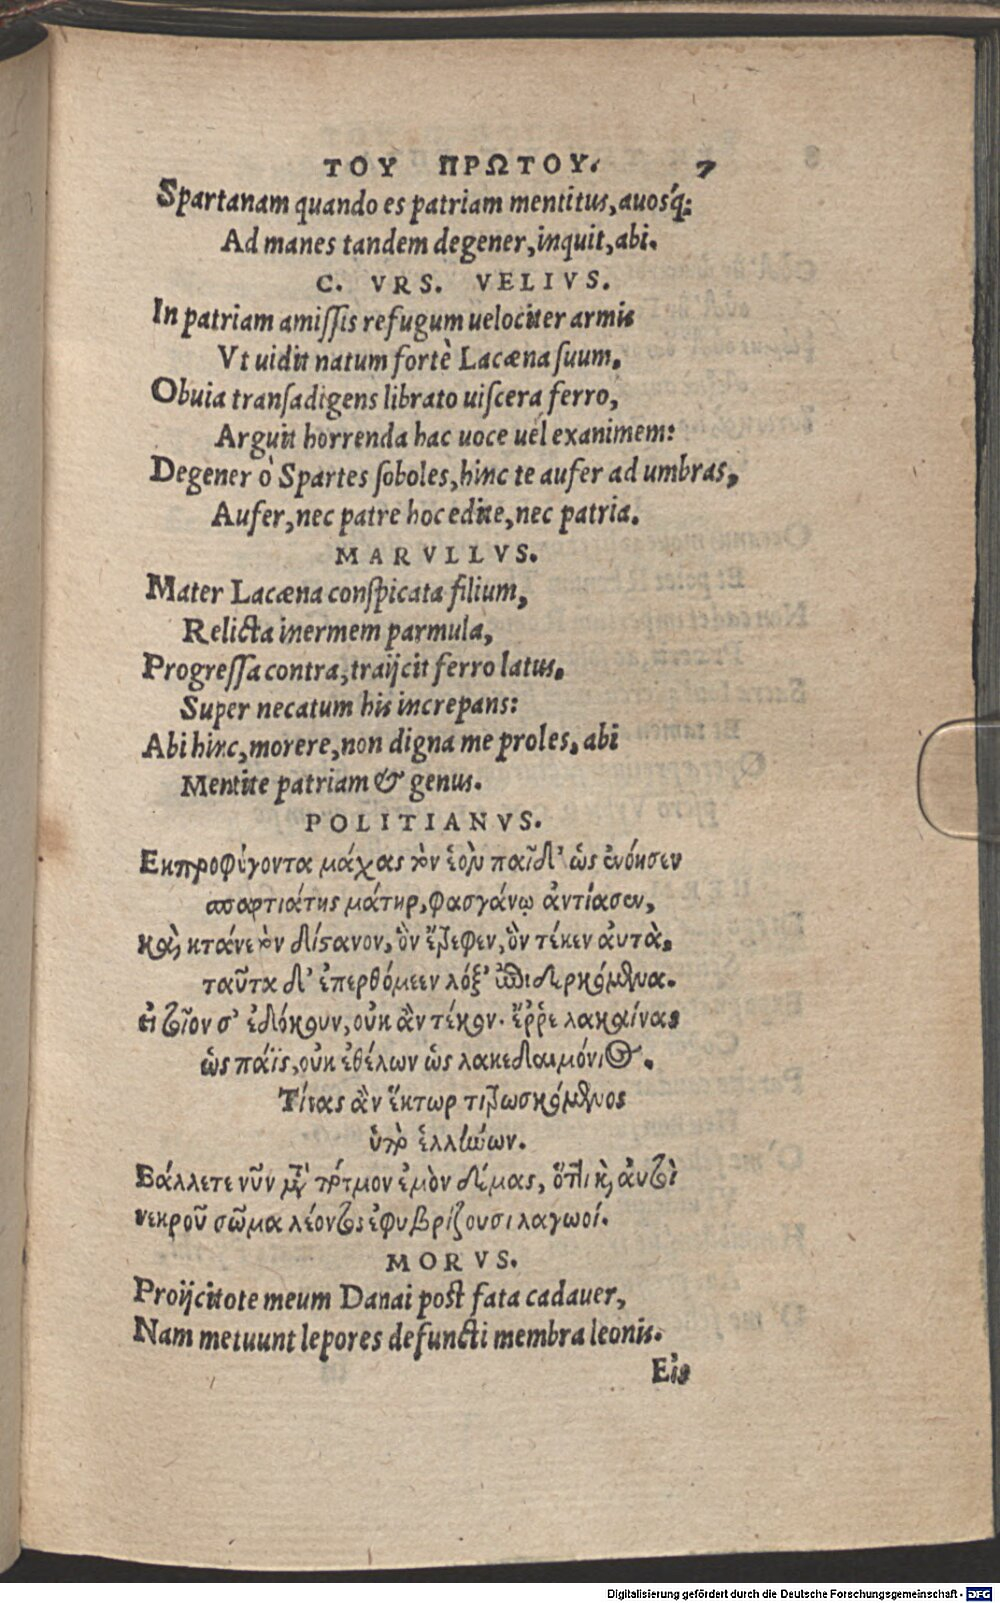 ΤΟΥ ΠΡΩΤΟΥ. 7
Spartanam quando es patriam mentitus, auosq́;
Ad manes tandem degener, inquit, abi.
C. VRS. VELIVS.
In patriam amiſſis refugum uelociter armis
Vt uidit natum fortè Lacæna ſuum.
Obuia tranſadigens librato uiſcera ferro,
Arguit horrenda hac uoce uel exanimem:
Degener ò Spartes ſoboles, hinc te aufer ad umbras,
Aufer, nec patre hoc edite, nec patria.
MARVLLVS.
Mater Lacæna conſpicata filium,
Relicta inermem parmula,
Progreſſa contra, traijcit ferro latus.
Super necatum his increpans:
Abi hinc, morere, non digna me proles, abi
Mentite patriam & genus.
POLITIANVS.
Εκπροφύγοντα μάχας τὸν ἑὸν παῖδ' ὡς ἐνόησεν
σπαρτιάτης μάτηρ, φασγάνῳ ἀντίασεν,
καὶ κτάνε τὸν δίσανον, ὃν ἔτρεφεν, ὃν τέκεν αὐτὰ.
ταῦτα δ' ἐπερθόμεεν λόξ' ἐπιδερκόμενα.
εἰ τοῖον σ' ἐδόκουν, οὐκ ἂν τέκον. ἔῤῥε λακαίνας
ὡς πάϊς, οὐκ ἐθέλων ὡς λακεδαιμόνιος.
Τίνας ἂν ἕκτωρ τιτρωσκόμενος
ὑπὸ ἑλλήνων.
Βάλλετε νῦν μετὰ πότμον ἐμὸν δέμας, ὅττι καὶ αὐτοὶ
νεκροῦ σῶμα λέοντος ἐφυβρίζουσι λαγωοί.
MORVS.
Proijcitote meum Danai poſt fata cadauer,
Nam metuunt lepores defuncti membra leonis.
Εἰς
Digitalisierung gefördert durch die Deutsche Forschungsgemeinschaft - DFG